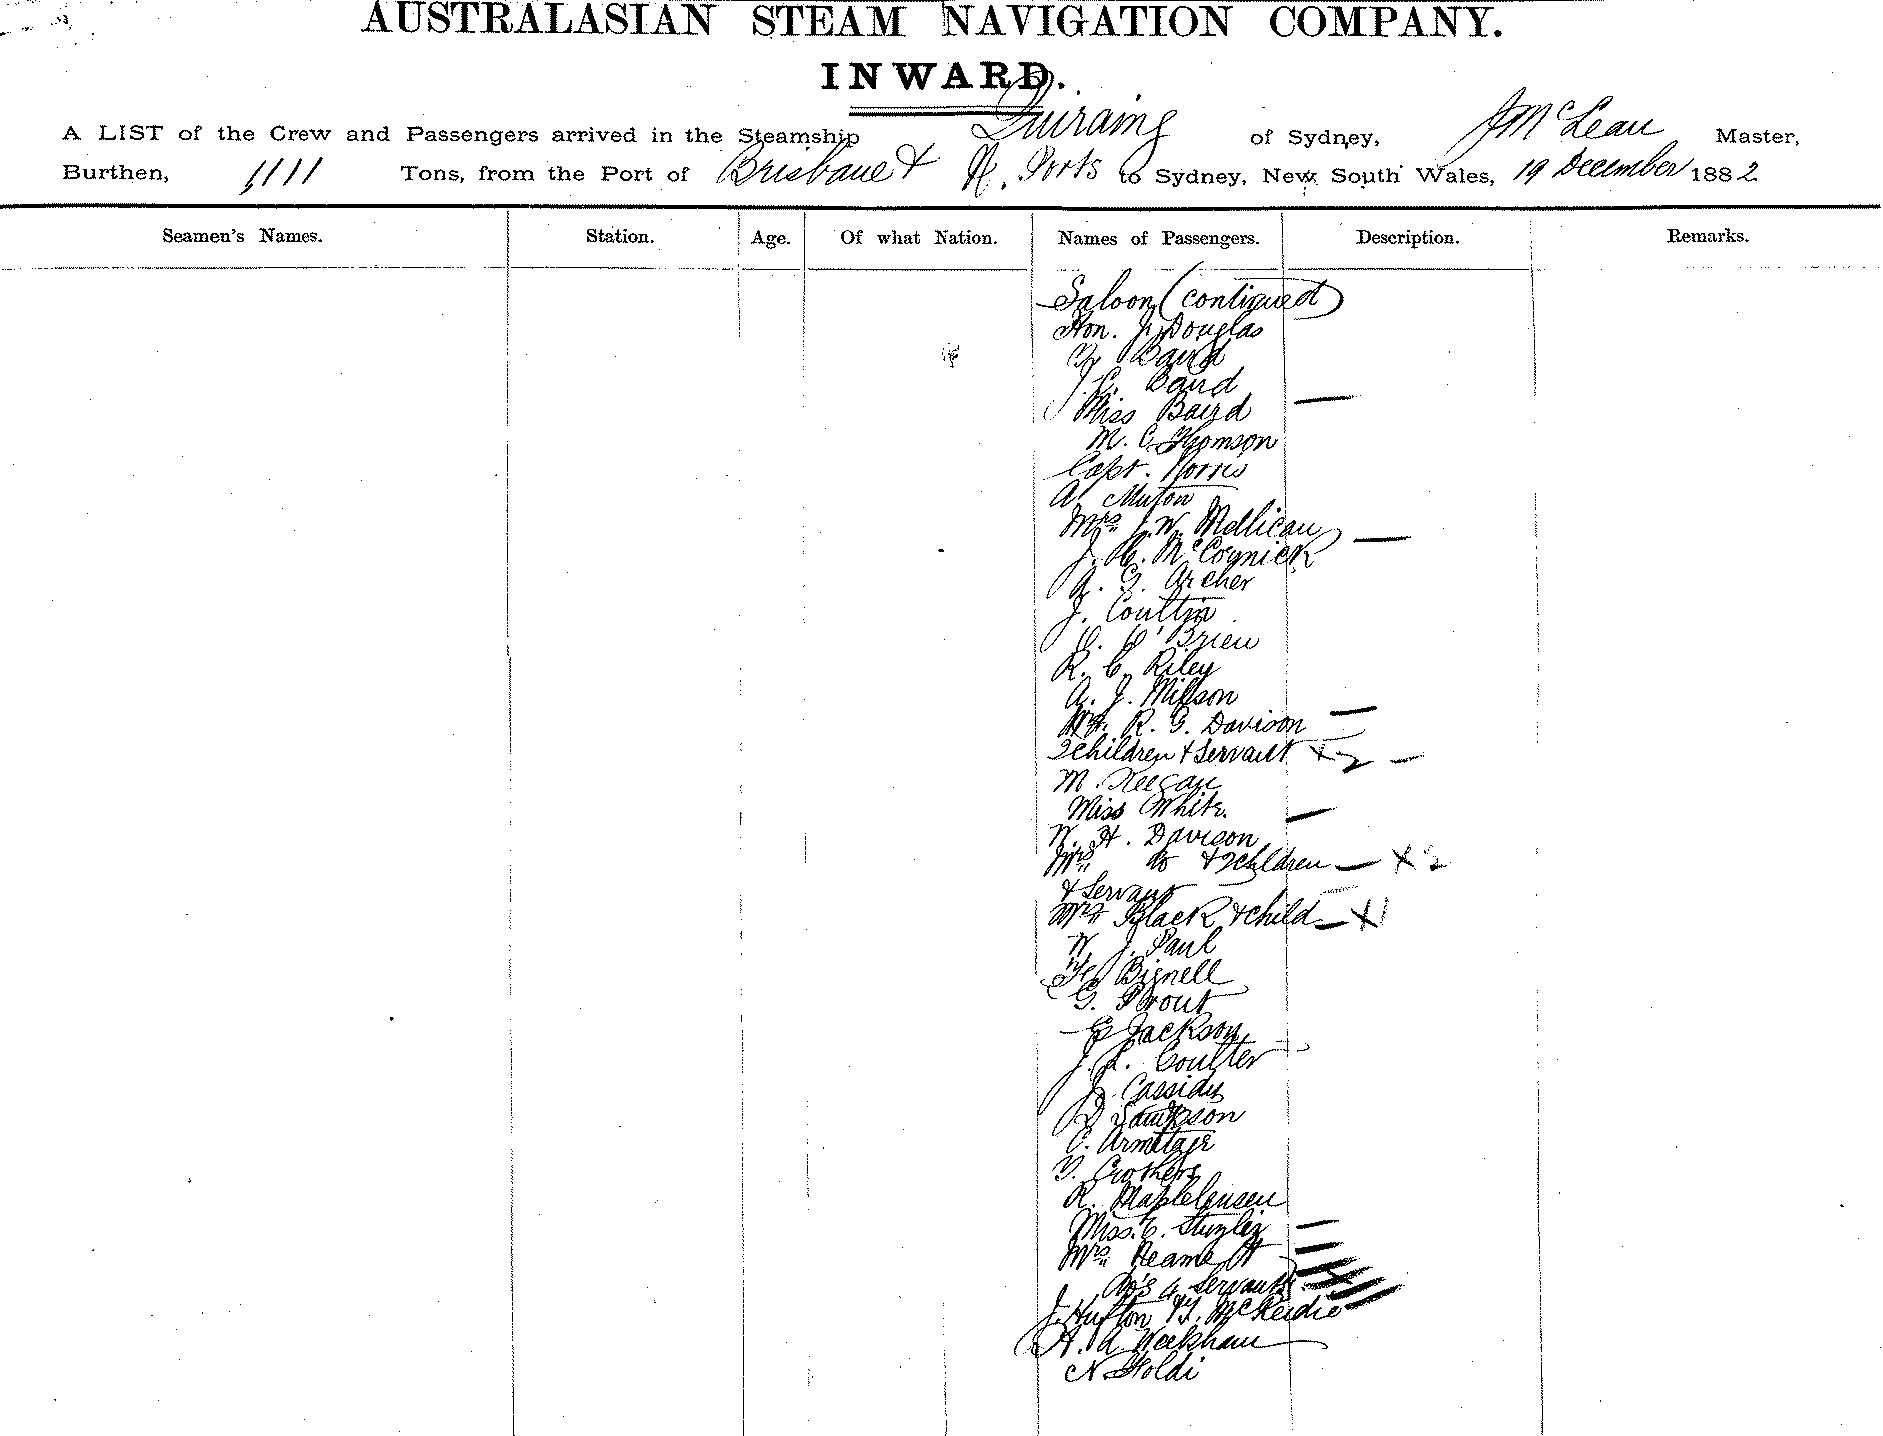 AUSTRALASIAN STEAM NAVIGATION COMPANY.
INWARD.
A LIST of the Crew and Passengers arrived in the Steamship Quiraing of Sydney, J McLean Master,
Burthen, 1111 Tons, from the Port of Brisbane & N. Ports to Sydney, New South Wales, 19 December 1882
Seamen's Names. Station. Age. Of what Nation. Names of Passengers. Description. Remarks.
Saloon (continued)
Hon. J. Douglas
Baird
J. C. Baird
Miss Baird —
M. C. Thomson
Capt. Norris
A.
Mrs J. W. Mellican —
J. C. McCormick
A. G. Archer
J.
C. O'Brien
R. C. Riley
A. J. Millson
Mrs. R. G. Davison —
2 children & Servant + 2 —
M. Keegan
Miss White. —
W. H. Davison
Mrs Do & 2 children — X 2
& Servant
Mrs Black & child — X 1
W. J. Paul
Bignell
G. Prout
E Jackson
J. L. Coulter
J. Cassidy
D Sampson
C. Armitage
Crothers
R.
Miss. C.
Mrs
4 Servants
J. Hutton
H. A.
Goldi